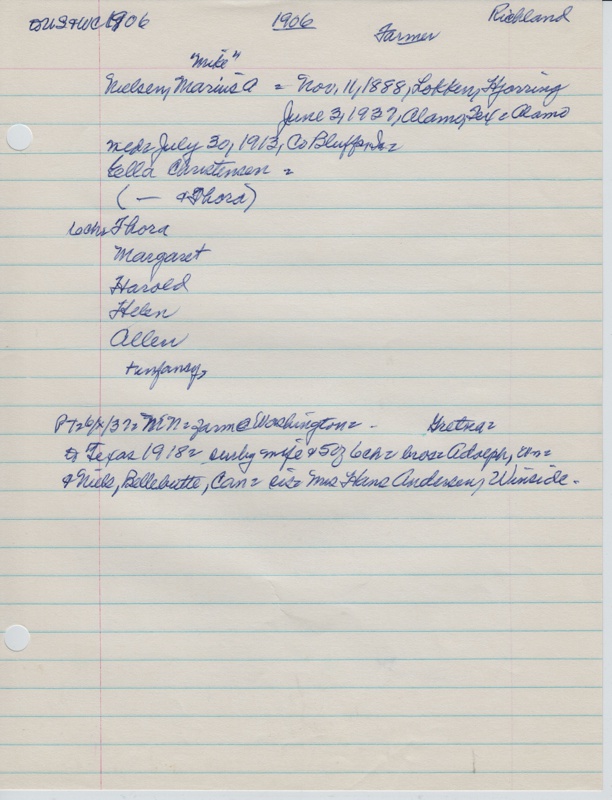 to U.S. & WC 1906 1906 Richland
Farmer
"Mike"
Nielsen, Marius A = Nov, 11, 1888, Lokken, Hjorring
June 3, 1937, Alamo, Tex = Alamo
med = July 30, 1913, Co Bluffs, Ia =
Cella Christensen =
( — & Thora)
6 chs Thora
Margaret
Harold
Helen
Allen
+ infancy,
PT = 6/ /37 = MN = farm @ Washington = - Gretna =
to Texas 1918 = surby wife & 5 of 6 ch = bros = Adolph, Wn =
& Niels, Bellebutte, Can = sis = Mrs Hans Andersen, Winside -